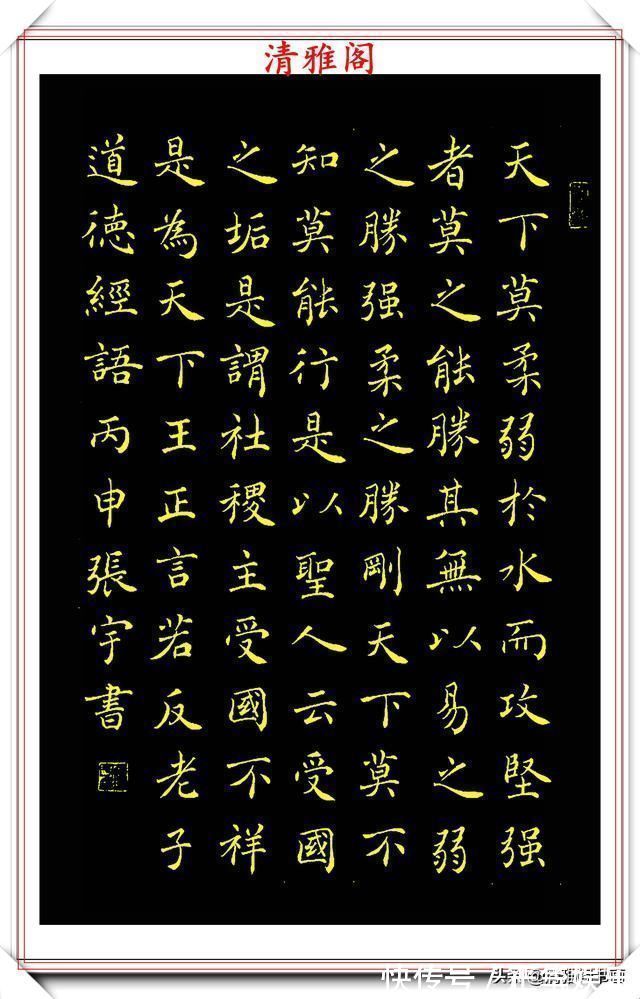 清雅阁
天下莫柔弱於水而攻堅强
者莫之能勝其無以易之弱
之勝强柔之勝剛天下莫不
知莫能行是以聖人云受國
之垢是謂社稷主受國不祥
是為天下王正言若反老子
道德經語丙申張宇書
快传号